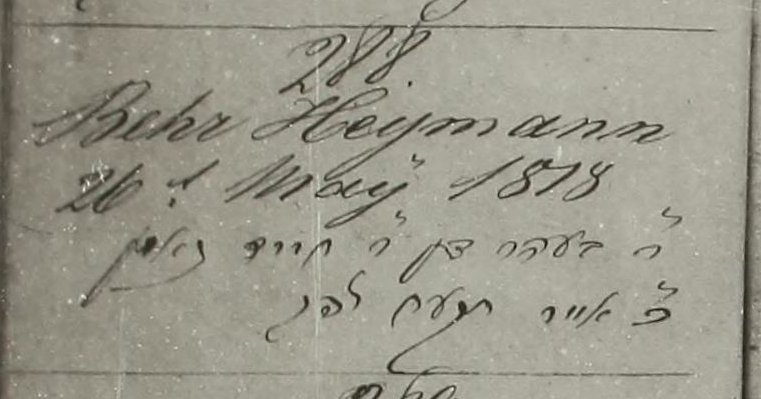 288.
Behr Heymann
26.t May 1818
ר' בעהר בן ר' חיים
כ' אייר תקעח לפק